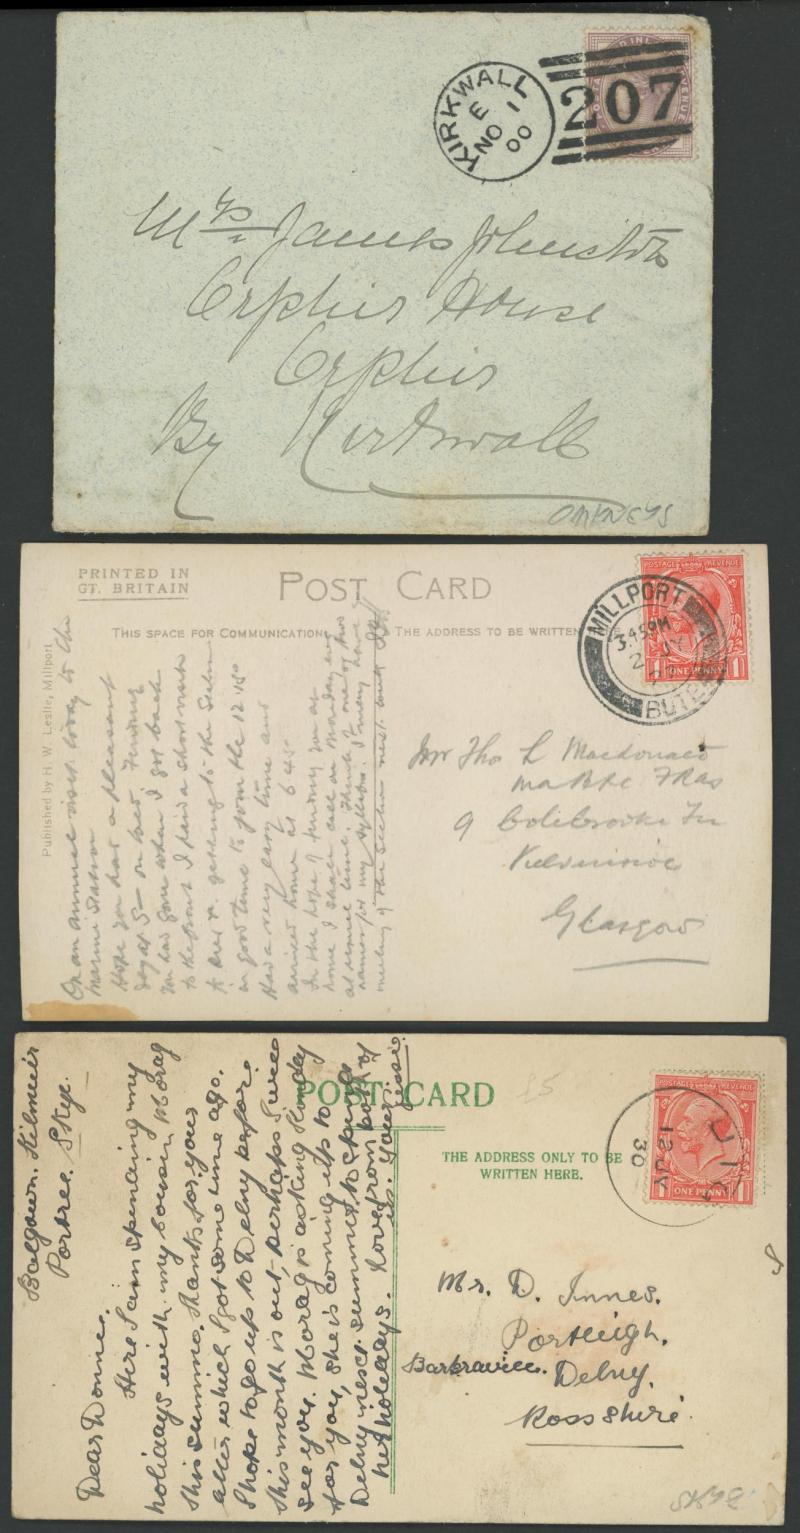 KIRKWALL
E
NO 1
00
207
Mrs James Johnston
Orphir House
Orphir
By Kirkwall
ORKNEYS
PRINTED IN
GT. BRITAIN
POST CARD
THIS SPACE FOR COMMUNICATION
THE ADDRESS TO BE WRITTEN
Published by H. W. Leslie, Millport
MILLPORT
3 45 PM
2 JY
BUTE
POSTAGE REVENUE
1 ONE PENNY 1
On an annual visit today to the
Marine Station
Hope you had a pleasant
day at
you had gone when I got back
to the I paid a short visit
to
in good time to join the 12.15
Had a very easy time and
arrived home at 6 45
In the hope of finding you at
home I shall call on Monday
at usual time. Think of one or two
names for my syllabus. I may have a
meeting of the Section next week
Mr Tho L Macdonald
9 Colebrooke Ter
Kelvinside
Glasgow
POST CARD
£5
THE ADDRESS ONLY TO BE
WRITTEN HERE.
POSTAGE REVENUE
1 ONE PENNY 1
UIG
12 JY
30
Balgown, Kilmuir
Portree. Skye.
Dear Donnie.
Here I am spending my
holidays with my cousin Morag
this summer. Thanks for your
letter which I got some time ago.
I hope to go up to Delny before
this month is out, perhaps I will
see you. Morag is asking kindly
for you, she is coming up to
Delny next summer to spend
her holidays. Love from both of
us. Your
Jessie
Mr. D. Innes.
Portleigh.
Barbaraville. Delny.
Ross shire.
SKYE